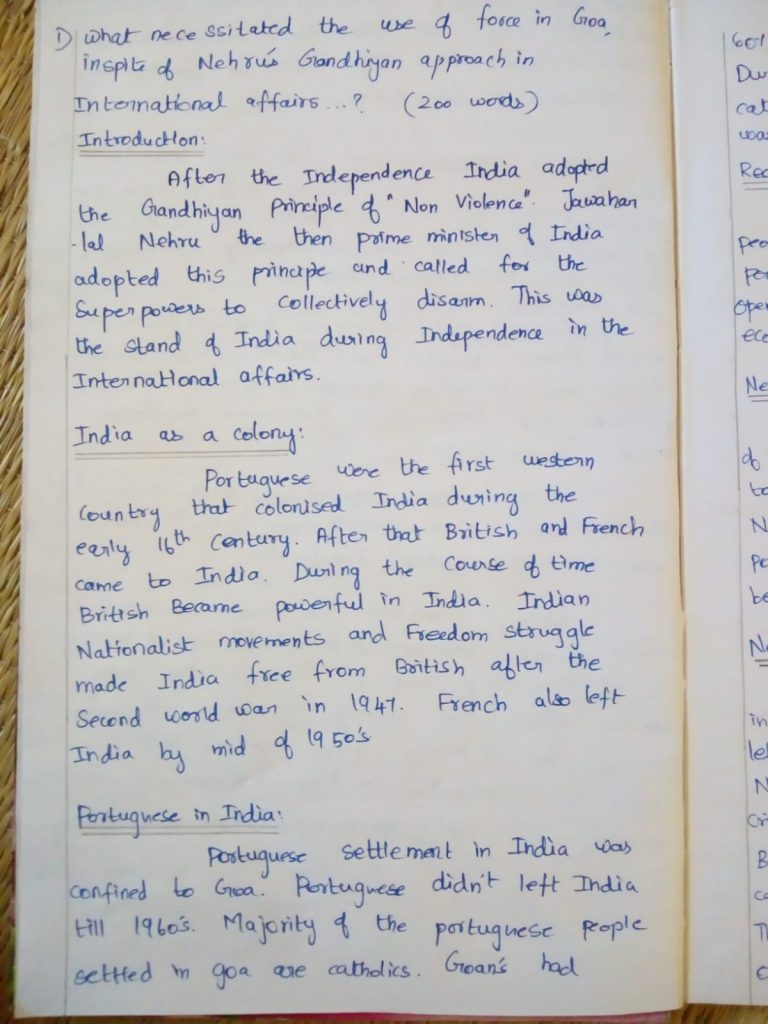 1) what necessitated the use of force in Goa,
inspite of Nehru's Gandhiyan approach in
International affairs...? (200 words)
Introduction:
After the Independence India adopted
the Gandhiyan Principle of "Non Violence". Jawahar
-lal Nehru the then prime minister of India
adopted this principe and called for the
Superpowers to Collectively disarm. This was
the stand of India during Independence in the
International affairs.
India as a colony:
Portuguese were the first western
Country that colonised India during the
early 16th Century. After that British and French
came to India. During the Course of time
British Became powerful in India. Indian
Nationalist movements and Freedom struggle
made India free from British after the
Second world war in 1947. French also left
India by mid of 1950's
Portuguese in India:
Portuguese settlement in India was
confined to Goa. Portuguese didn't left India
till 1960's. Majority of the portuguese people
settled in goa are catholics. Goan's had
601
Du
cat
was
Rec
peo
Po
Oper
eco
Ne
of
to
N
Po
be
N
in
le
N
Cri
B
Co
T